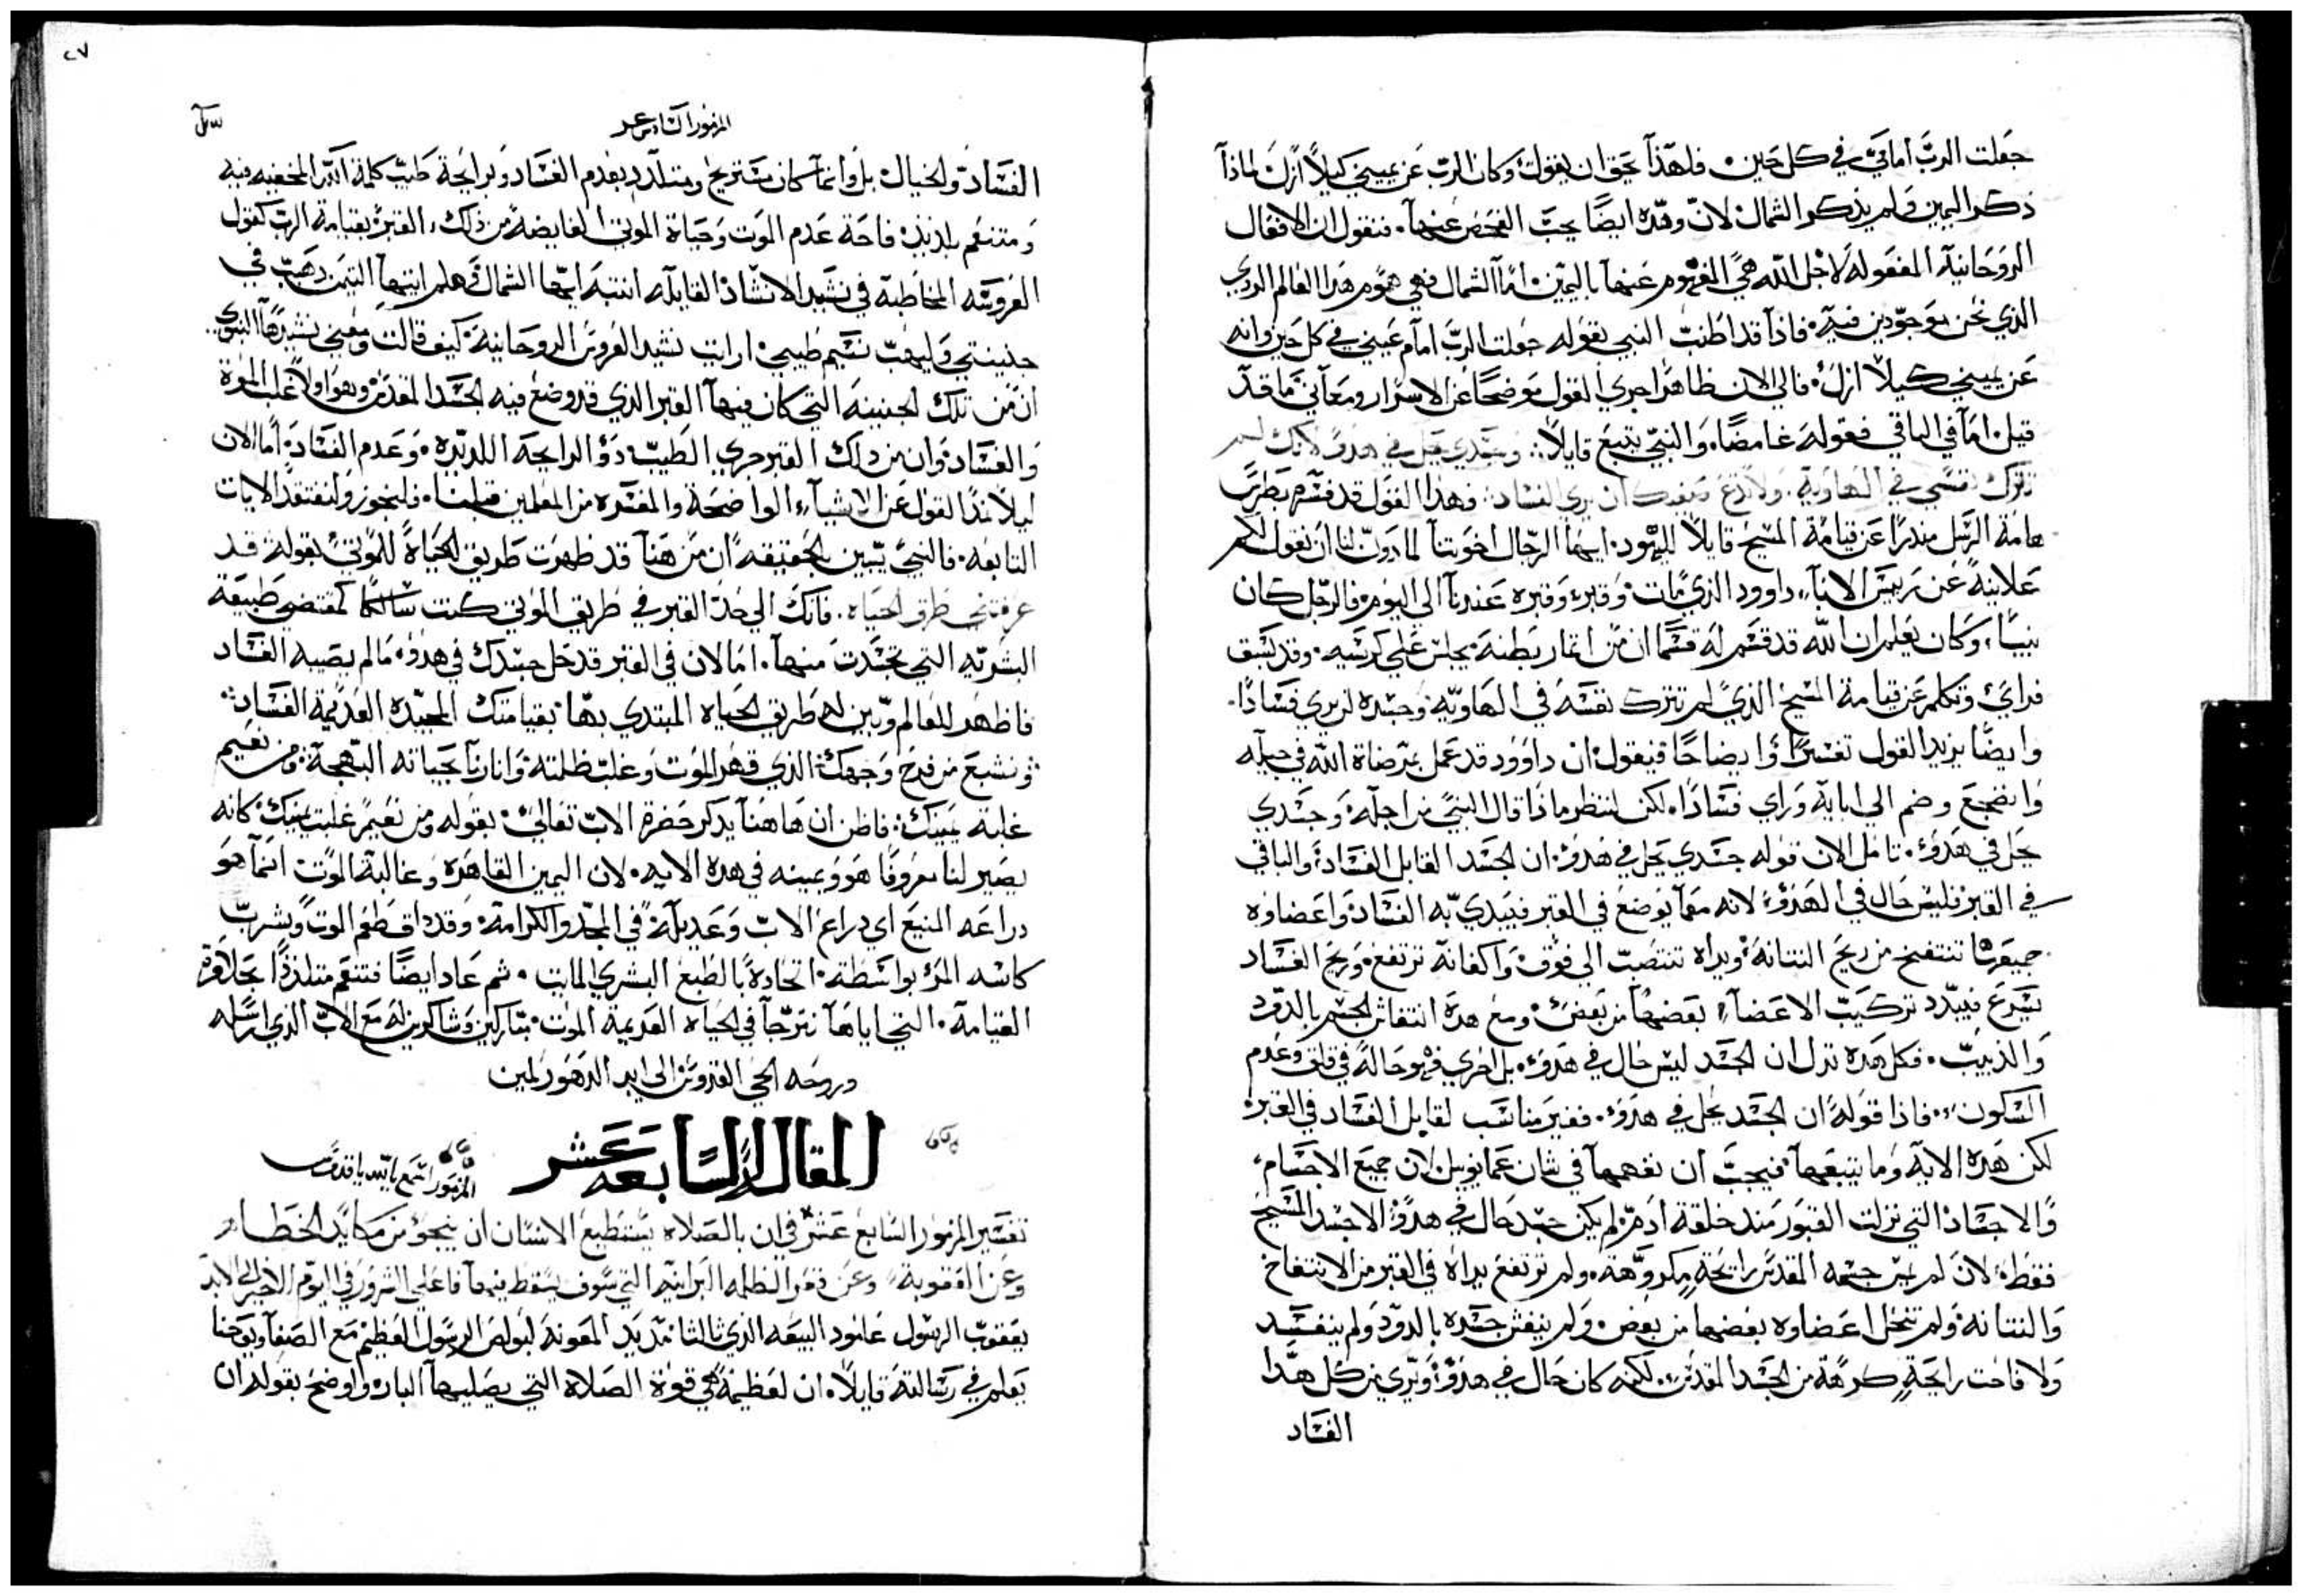 جعلت الربَّ امامي في كل حين. فلهذا يحق ان يقول، وكان الربّ عن يميني كيلا ازل. لماذا
ذكر اليمين ولم يذكر الشمال. لانّ وهذه ايضًا يجب الفحص عنها. فنقول ان الافعال
الروحانية المفعوله لاجل الله هي المفهوم عنها باليمين. امّا الشمال فهي هموم هذا العالم الردي
الذي نحن موجودين فيه. فاذا قد اطنب النبي بقوله جعلت الربّ امام عيني في كل حين وانه
عن يميني كيلا ازل. فالي الان ظاهرا جري القول موضحًا عن الاسرار ومعاني ما قد
قيل. اما في الباقي فقوله غامضًا. والنبيّ يتبع قايلاً: وجسدي يحل في هدؤ لانك لم
تترك نفسي في الهاوية. ولا تدع صفيك ان يري الفساد. فهذا القول قد فسّره بطرس
هامة الرسل منذرًا عن قيامة المسيح قايلا لليهود. ايها الرجال اخوتنا لماذون لنا ان نقول لكم
علانيةً عن رييس الابآء داوود الذي مات وقبر وقبره عندنا الي اليوم. فالرجل كان
نبيًا، وكان يعلم ان الله قد قسم له قسمًا ان من اثمار بطنه يجلس علي كرسيه. وقد كشف
فراي وتكلم عن قيامة المسيح الذي لم تترك نفسه في الهاويّه وجسده لم يري فسادًا.
وايضًا يزيد القول تفسيرًا وايضاحًا فيقول، ان داوود قد عمل بمرضاة الله في جيله
وانضجع وضم الي ابايه وراي فسادًا. لكن لننظر ماذا قال النبي من اجله، وجسدي
يحل في هدؤ. تامل الان قوله جسدي يحل في هدؤ. ان الجسد القابل الفساد والباقي
في القبر فليس حال في الهدؤ، لانه مهما يوضع في القبر فيبدي به الفساد واعضاوه
جميعها تنتفخ من ريح النتانة، ويداه تنتصب الي فوق واكفانه ترتفع. وريح الفساد
يسرع فيبدد تركيب الاعضآء بعضها من بعض. ومع هذه انتفاش الجسم بالدود
والذبيب. فكل هذه تدل ان الجسد ليس حال في هدؤ. بل احري فهو حاله في قلق وعدم
السكون. فاذا قوله ان الجسد يحل في هدؤ. فغير مناسب لقابل الفساد في القبر.
لكن هذه الاية وما يتبعها فيجب ان نفهمها في شان عمانوييل. لان جميع الاجسام
والاجساد التي نزلت القبور منذ خلقة ادم. لم يكن جسد حال في هدؤ الا جسد المسيح
فقط، لان لم جسمه المقدس رايحة مكروهة. ولم ترتفع يداه في القبر من الانتفاخ
والنتانة، ولم تنحل اعضاوه بعضها من بعض. ولم ينفش جسده بالدود ولم ينفسد
ولا فاحت رايحة كرهة من الجسد المقدس. لكنه كان حال في هدؤ وبري من كل هذا
الفساد
٢٧
المزمور السادس عشر
الفساد والخيال. بل وانما كان يستريح ويتلذد بعدم الفساد وبرايحة طيب كلمة الله المخفيه فيه
ومتنعم بلذيذ فاحة عدم الموت وحياة الموتي الفايضة من ذلك القبر بقيامة الرب كقول
العروسه المخاطبة في نشيد الانشاد القايله انتبه ايها الشمال وهلم ايتها التيمن وهب في
جنينتي وليهب نسيم طيبي. ارايت نشيد العروس الروحانية كيف قالت ومعني نشيدها النبوي
ان من تلك الجنينه التي كان فيها القبر الذي قد وضع فيه الجسد المقدس وهو اولا غلب الموت
والفساد. وان من ذلك القبر جري الطيب ذو الرايحة اللديده. وعدم الفساد. اما الان
ليلا نمد القول عن الاشيآء الواضحة والمفسره من المعلمين قبلنا. فلنجوز ولنفتقد الايات
التابعه. فالنبي يبين بالحقيقه ان من هنا قد ظهرت طريق الحياة للموتي بقوله قد
عرفتني طرق الحياه. فانك الي حد القبر في طريق الموتي كنت سالكا كمقتضي طبيعة
البشريه التي تجسدت منها. اما الان في القبر قد حل جسدك في هدؤ، ما لم يصيبه الفساد
فاظهر للعالم وبين له طريق الحياه المبتدي بها بقيامتك المجيده العديمة الفساد:
ونشبع من فرح وجهك: الذي قهر الموت وغلب ظلمته وانارنا بحياته البهجة. ومن نعيم
غلبة يمينك: فاظن ان هاهنا يذكر حضرة الاب تعالي. بقوله ومن نعيم غلبت يمينك. كانه
يصير لنا معروفا هو ويمينه في هذه الايه. لان اليمين القاهرة وغالبة الموت انما هو
دراعه المنيع اي ذراع الاب وعديله في المجد والكرامة. وقد ذاق طعم الموت وشرب
كاسه المر بواسطة. اتحاده بالطبع البشري المايت. ثم عاد ايضًا فتنعم متلذذا بحلاوة
القيامة. التي اياها نترجا في الحياه العديمة الموت. متباركين وشاكرين له مع الاب الذي ارسله
وروحه الحي القدوس الي ابد الدهور امين
المقالة السابعه عشر
المزمور استمع يا الله يا قدوس
تفسير المزمور السابع عشر في ان بالصلاه يستطيع الانسان ان ينجو من مكايد الخطاه
وعن العقوبة وعن قعر الظلمه البرانيه التي سوف يسقط فيها فاعلي الشرور في اليوم الاخير الي الابد
يعقوب الرسول عامود البيعه الذي ثالثا مد يد المعونة لبولص الرسول العظيم مع الصفا ويوحنا
يعلم في رسالته قايلا. ان لعظيمة هي قوة الصلاة التي يصليها البار. واوضح بقوله ان